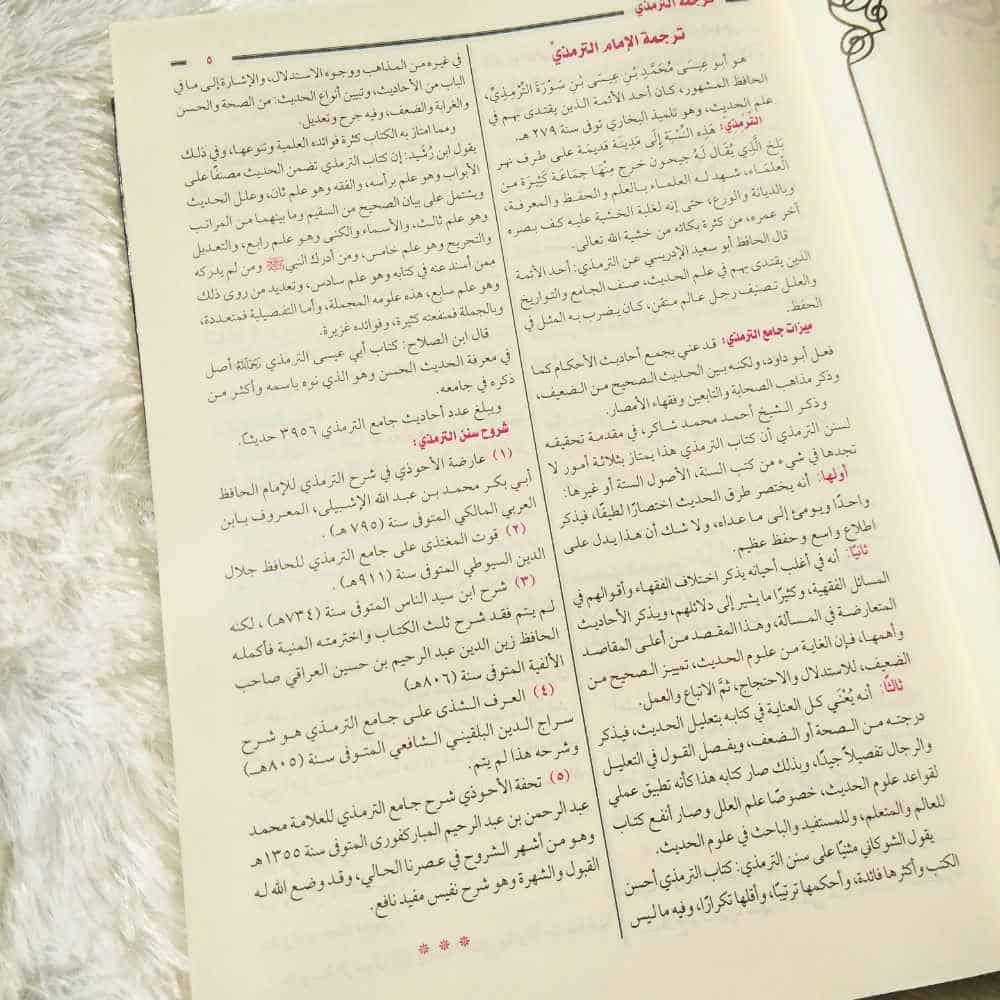 ترجمة الترمذي
٥
ترجمة الإمام الترمذيّ
هو أبو عِيسَى مُحَمَّدِ بْنِ عِيسَى بْنِ سَوْرَةَ التِّرْمِذِيِّ،
الحافظ المشهور، كان أحد الأئمة الذين يقتدى بهم في
علم الحديث، وهو تلميذ البخاري توفى سنة ٢٧٩ هـ.
التّرْمذيّ: هَذِهِ النِّسْبَة إِلَى مَدِينَة قديمَة على طرف نهر
بَلخ الَّذِي يُقَال لَهُ جيحون خرج مِنْهَا جمَاعَة كَثِيرَة من
العلمَاء، شهد لـه العلماء بالعلم والحفظ والمعرفة،
وبالديانة والورع، حتى إنه لغلبة الخشية عليه كف بصره
آخر عمره، من كثرة بكائه من خشية الله تعالى.
قال الحافظ أبو سعيد الإدريسي عن الترمذي: أحد الأئمة
الذين يقتدى بهم في علم الحديث، صنف الجامع والتواريخ
والعلل تصنيف رجل عالم متقن، كان يضرب به المثل في
الحفظ.
ميزات جامع الترمذي: قد عني بجمع أحاديث الأحكام كما
فعل أبو داود، ولكنه بين الحديث الصحيح من الضعيف،
وذكر مذاهب الصحابة والتابعين وفقهاء الأمصار.
وذكر الشيخ أحمد محمد شاكر، في مقدمة تحقيقه
لسنن الترمذي أن كتاب الترمذي هذا يمتاز بثلاثة أمور لا
تجدها في شيء من كتب السنة، الأصول الستة أو غيرها:
أولها: أنه يختصر طرق الحديث اختصارًا لطيفًا، فيذكر
واحدًا ويومئ إلى ما عداه، ولا شك أن هذا يدل على
اطلاع واسع وحفظ عظيم.
ثانيًا: أنه في أغلب أحيانه يذكر اختلاف الفقهاء وأقوالهم في
المسائل الفقهية، وكثيرًا ما يشير إلى دلائلهم، ويذكر الأحاديث
المتعارضة في المسألة، وهذا المقصد من أعلى المقاصد
وأهمها، فإن الغاية من علوم الحديث، تمييز الصحيح من
الضعيف، للاستدلال والاحتجاج، ثمَّ الاتباع والعمل.
ثالثًا: أنه يُعْنَي كل العناية في كتابه بتعليل الحديث، فيذكر
درجته من الصحة أو الضعف، ويفصل القول في التعليل
والرجال تفصيلاً جيدًا، وبذلك صار كتابه هذا كأنه تطبيق عملي
لقواعد علوم الحديث، خصوصًا علم العلل وصار أنفع كتاب
للعالم والمتعلم، وللمستفيد والباحث في علوم الحديث.
يقول الشوكاني مثنيًا على سنن الترمذي: كتاب الترمذي أحسن
الكتب وأكثرها فائدة، وأحكمها ترتيبًا، وأقلها تكرارًا، وفيه ما ليس
في غيره من المذاهب ووجوه الاستدلال، والإشارة إلى ما في
الباب من الأحاديث، وتبيين أنواع الحديث: من الصحة والحسن
والغرابة والضعف، وفيه جرح وتعديل.
ومما امتاز به الكتاب كثرة فوائده العلمية وتنوعها، وفي ذلك
يقول ابن رُشَيد: إن كتاب الترمذي تضمن الحديث مصنفًا على
الأبواب وهو علم برأسه، والفقه وهو علم ثان، وعلل الحديث
ويشتمل على بيان الصحيح من السقيم وما بينهما من المراتب
وهو علم ثالث، والأسماء والكنى وهو علم رابع، والتعديل
والتجريح وهو علم خامس، ومن أدرك النبي ﷺ ومن لم يدركه
ممن أسند عنه في كتابه وهو علم سادس، وتعديد من روى ذلك
وهو علم سابع، هذه علومه المجملة، وأما التفصيلية فمتعددة،
وبالجملة فمنفعته كثيرة، وفوائده غزيرة.
قال ابن الصلاح: كتاب أبي عيسى الترمذي رَحِمَهُ اللَّهُ أصل
في معرفة الحديث الحسن وهو الذي نوه باسمه وأكثر من
ذكره في جامعه.
ويبلغ عدد أحاديث جامع الترمذي ٣٩٥٦ حديثًا.
شروح سنن الترمذي:
(١) عارضة الأحوذي في شرح الترمذي للإمام الحافظ
أبي بكر محمد بن عبد الله الإشبيلى، المعروف بابن
العربي المالكي المتوفى سنة (٧٩٥ هـ) .
(٢) قوت المغتذى على جامع الترمذي للحافظ جلال
الدين السيوطي المتوفى سنة (٩١١هـ) .
(٣) شرح ابن سيد الناس المتوفى سنة (٧٣٤هـ) ، لكنه
لم يتم فقد شرح ثلث الكتاب واخترمته المنية فأكمله
الحافظ زين الدين عبد الرحيم بن حسين العراقي صاحب
الألفية المتوفى سنة (٨٠٦هـ)
(٤) العرف الشذى على جامع الترمذي هو شرح
سراج الدين البلقيني الشافعي المتوفى سنة (٨٠٥هـ)
وشرحه هذا لم يتم.
(٥) تحفة الأحوذي شرح جامع الترمذي للعلامة محمد
عبد الرحمن بن عبد الرحيم المباركفورى المتوفى سنة ١٣٥٥ هـ
وهو من أشهر الشروح في عصرنا الحالي، وقد وضع الله له
القبول والشهرة وهو شرح نفيس مفيد نافع.
* * *